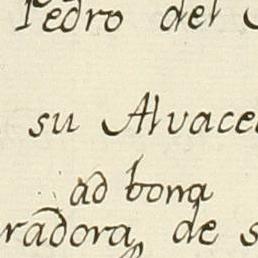 Pedro del
su Alvacea
ad bona
radora, de s